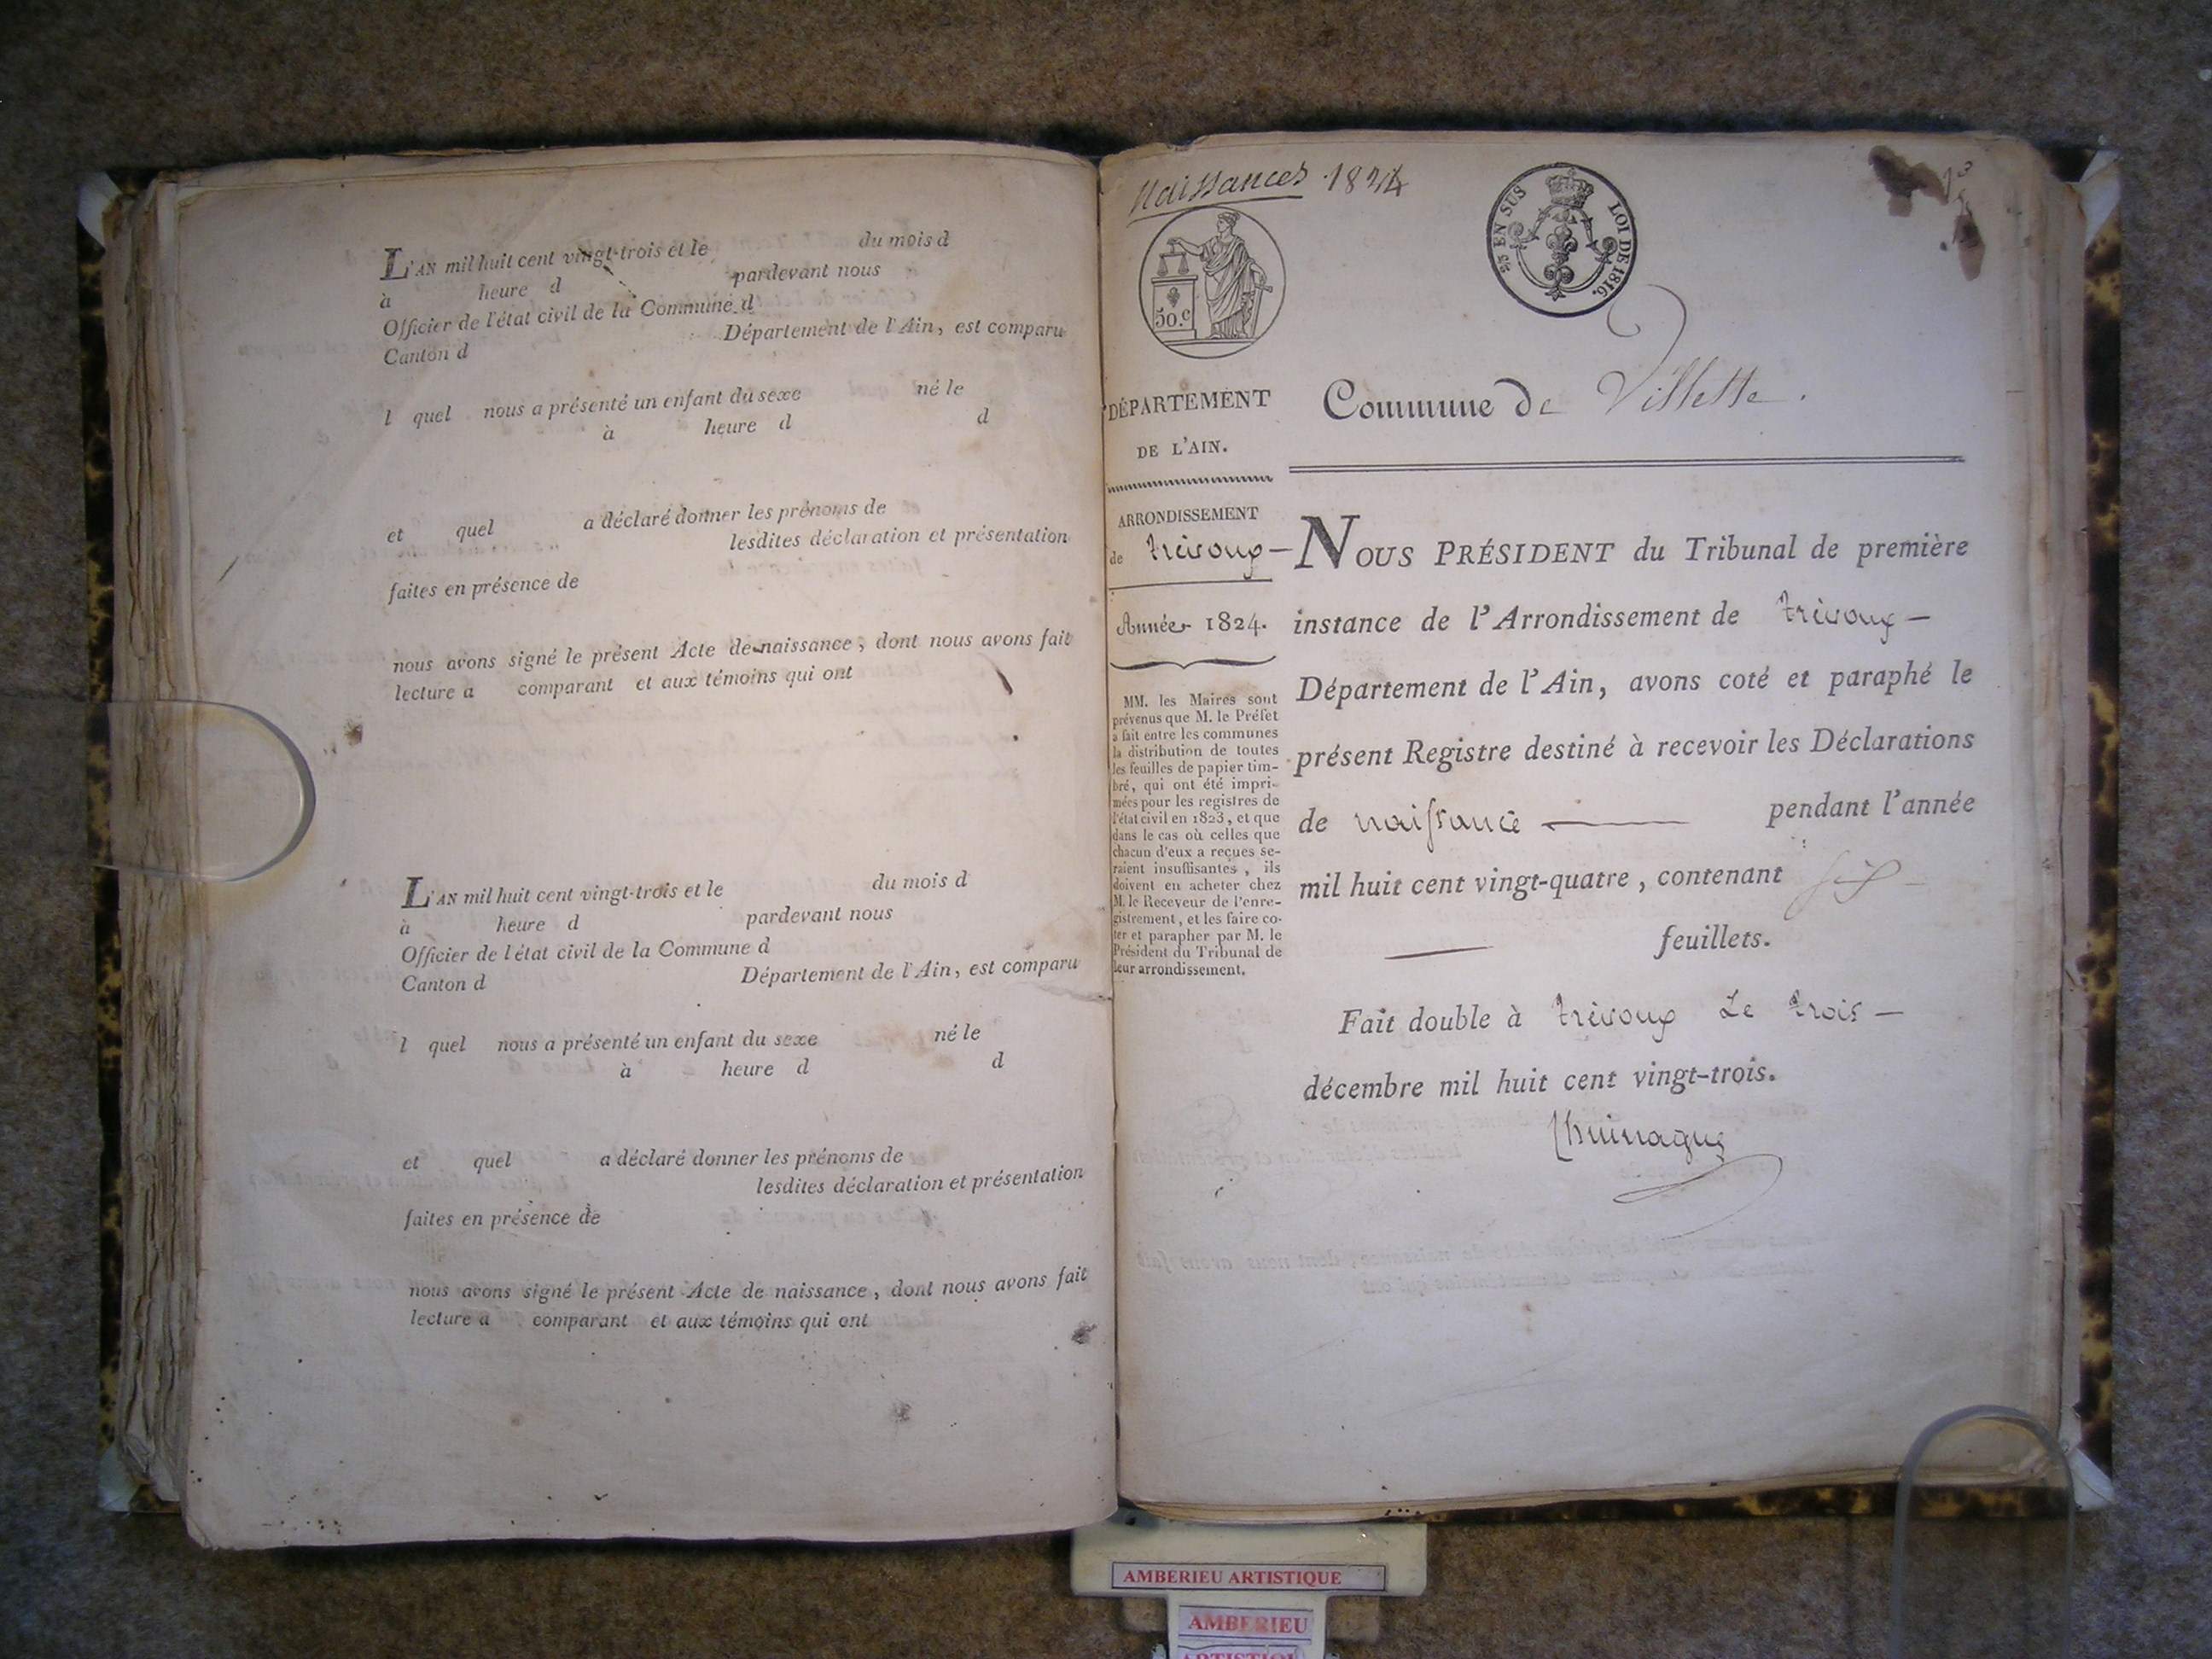 L'AN mil huit cent vingt-trois et le du mois d
à heure d pardevant nous
Officier de l'état civil de la Commune d
Canton d Département de l'Ain, est comparu
l quel nous a présenté un enfant du sexe né le
à heure d d
et quel a déclaré donner les prénoms de
lesdites déclaration et présentation
faites en présence de
nous avons signé le présent Acte de naissance, dont nous avons fait
lecture a comparant et aux témoins qui ont
L'AN mil huit cent vingt-trois et le du mois d
à heure d pardevant nous
Officier de l'état civil de la Commune d
Canton d Département de l'Ain, est comparu
l quel nous a présenté un enfant du sexe né le
à heure d d
et quel a déclaré donner les prénoms de
lesdites déclaration et présentation
faites en présence de
nous avons signé le présent Acte de naissance, dont nous avons fait
lecture a comparant et aux témoins qui ont
Naissances 1824
50.c
EN SUS LOI DE 1816.
DÉPARTEMENT
DE L'AIN.
ARRONDISSEMENT
de trévoux
Année 1824.
MM. les Maires sont
prévenus que M. le Préfet
a fait entre les communes
la distribution de toutes
les feuilles de papier tim-
bré, qui ont été impri-
mées pour les registres de
l'état civil en 1823, et que
dans le cas où celles que
chacun d'eux a reçues se-
raient insuffisantes, ils
doivent en acheter chez
M. le Receveur de l'enre-
gistrement, et les faire co-
ter et parapher par M. le
Président du Tribunal de
leur arrondissement.
Commune de Villette.
NOUS PRÉSIDENT du Tribunal de première
instance de l'Arrondissement de trévoux —
Département de l'Ain, avons coté et paraphé le
présent Registre destiné à recevoir les Déclarations
de naissance — pendant l'année
mil huit cent vingt-quatre, contenant six —
— feuillets.
Fait double à trévoux Le trois —
décembre mil huit cent vingt-trois.
AMBERIEU ARTISTIQUE
AMBERIEU
ARTISTIQU